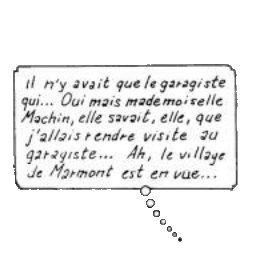 il n'y avait que le garagiste
qui... Oui mais mademoiselle
Machin, elle savait, elle, que
j'allais rendre visite au
garagiste... Ah, le village
de Marmont est en vue...